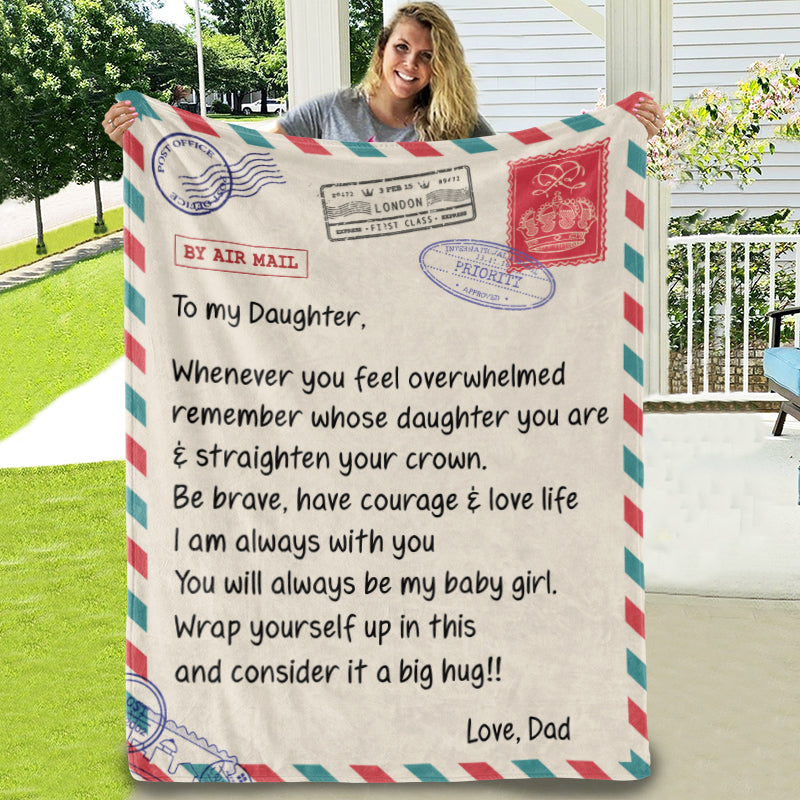 POST OFFICE
POST OFFICE
20172 3 FEB 15 09/72
LONDON
EXPRESS · FIRST CLASS · EXPRESS
BY AIR MAIL
INTERNATIONAL
PRIORITY
· APPROVED ·
To my Daughter,
Whenever you feel overwhelmed
remember whose daughter you are
& straighten your crown.
Be brave, have courage & love life
I am always with you
You will always be my baby girl.
Wrap yourself up in this
and consider it a big hug!!
Love, Dad